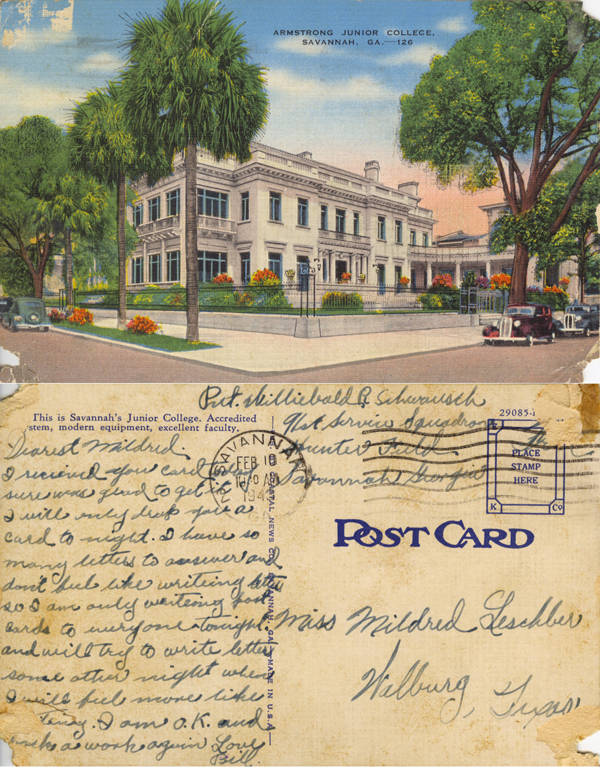 ARMSTRONG JUNIOR COLLEGE,
SAVANNAH, GA.—126
This is Savannah's Junior College. Accredited
stem, modern equipment, excellent faculty.
Pvt. Williebald P. Schwausch
91st Service Squadron
Hunter Field
Savannah Georgia
29085-i
PLACE
STAMP
HERE
K Co
SAVANNAH
FEB 10
AM
194
POST CARD
Dearest Mildred.
I recieved you card today
sure was glad to get it
I will only drop you a
card to night. I have so
many letters to answer and
don't feel like writeing letters
so I am only writeing post
cards to everyone tonight.
and will try to write letter
some other night when
I will feel more like
I am O.K. and
back a work again Love
Bill.
SAVANNAH, GA. MADE IN U.S.A.
Miss Mildred Leschber
Walburg, Texas